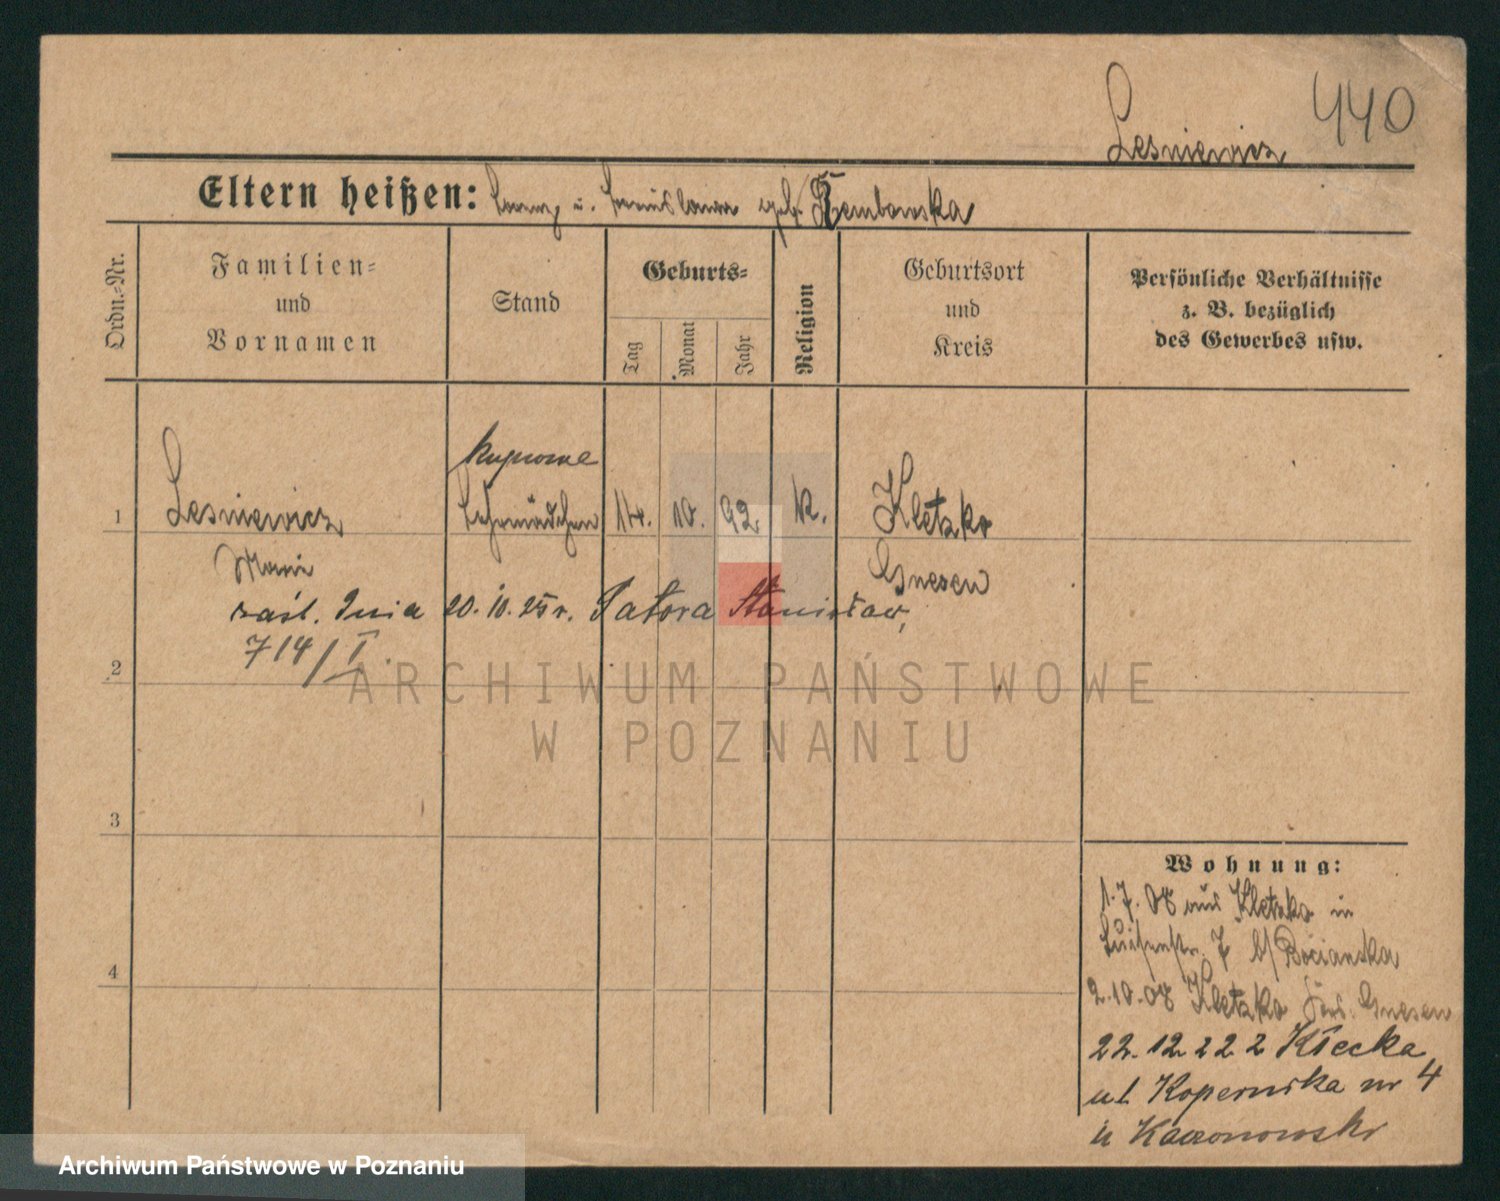 440
Leśniewicz
Eltern heißen: Lorenz u. geb. Rembowska
Ordn.-Nr.
Familien-
und
Vornamen
Stand
Geburts-
Tag
Monat
Jahr
Religion
Geburtsort
und
Kreis
Persönliche Verhältnisse
z. B. bezüglich
des Gewerbes usw.
1
Leśniewicz
Lehrmädchen
14. 10. 92 K.
Kletzko
Marie
Gnesen
zaśl. dnia 20.10.25 r. Patora Stanisław,
714/I.
2
3
4
Wohnung:
1.7.08 aus Kletzko in
Luisenstr. 7 b/Bocianska
2.10.08 Kletzko Krs. Gnesen
22.12.22 z Kłecka
ul. Kopernika nr 4
u
ARCHIWUM PAŃSTWOWE
W POZNANIU
Archiwum Państwowe w Poznaniu